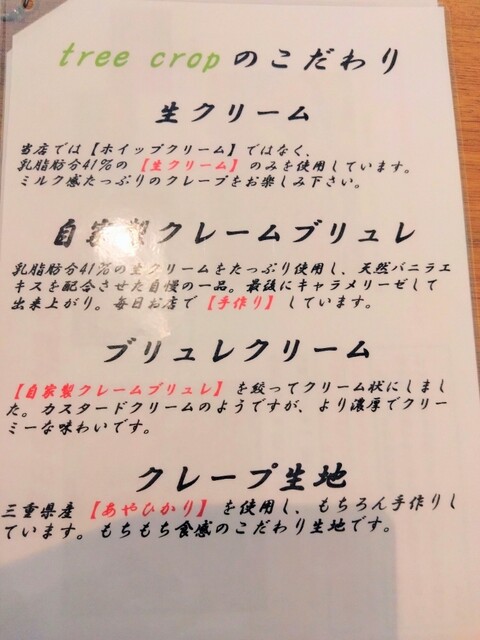 tree cropのこだわり
生クリーム
当店では【ホイップクリーム】ではなく、
乳脂肪分41%の【生クリーム】のみを使用しています。
ミルク感たっぷりのクレープをお楽しみ下さい。
自家製クレームブリュレ
乳脂肪分41%の生クリームをたっぷり使用し、天然バニラエ
キスを配合させた自慢の一品。最後にキャラメリーゼして
出来上がり。毎日お店で【手作り】しています。
ブリュレクリーム
【自家製クレームブリュレ】を絞ってクリーム状にしまし
た。カスタードクリームのようですが、より濃厚でクリー
ミーな味わいです。
クレープ生地
三重県産【あやひかり】を使用し、もちろん手作りし
ています。もちもち食感のこだわり生地です。